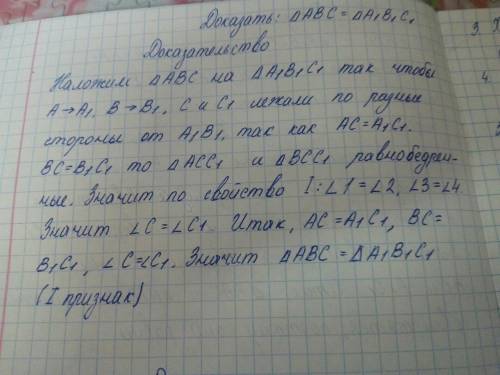 Доказать: ΔABC = ΔA₁B₁C₁
Доказательство
Наложим ΔABC на ΔA₁B₁C₁ так чтобы
A→A₁, B→B₁, C и C₁ лежали по разные
стороны от A₁B₁, так как AC=A₁C₁.
BC=B₁C₁ то ΔACC₁ и ΔBCC₁ равнобедрен-
ные. Значит по свойство I: ∠1=∠2, ∠3=∠4
Значит ∠C=∠C₁. Итак, AC=A₁C₁, BC=
B₁C₁, ∠C=∠C₁. Значит ΔABC=ΔA₁B₁C₁
(I признак)
3.
4.